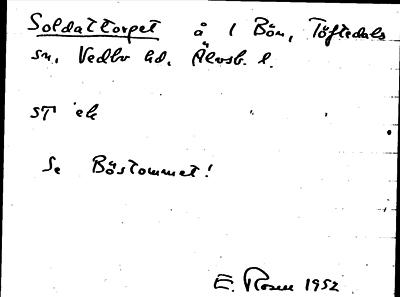 Soldattorpet å 1 Bön, Töftedals
sn, Vedbo hd. Älvsb. l.
ST ek
Se Böstommet!
E. Rosen 1952